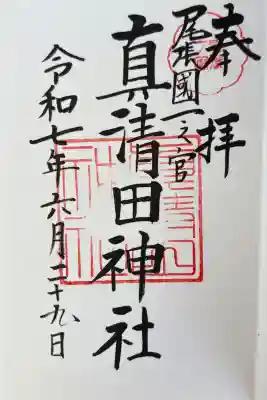 奉拝
尾張國一之宮
真清田神社
令和七年六月二十九日